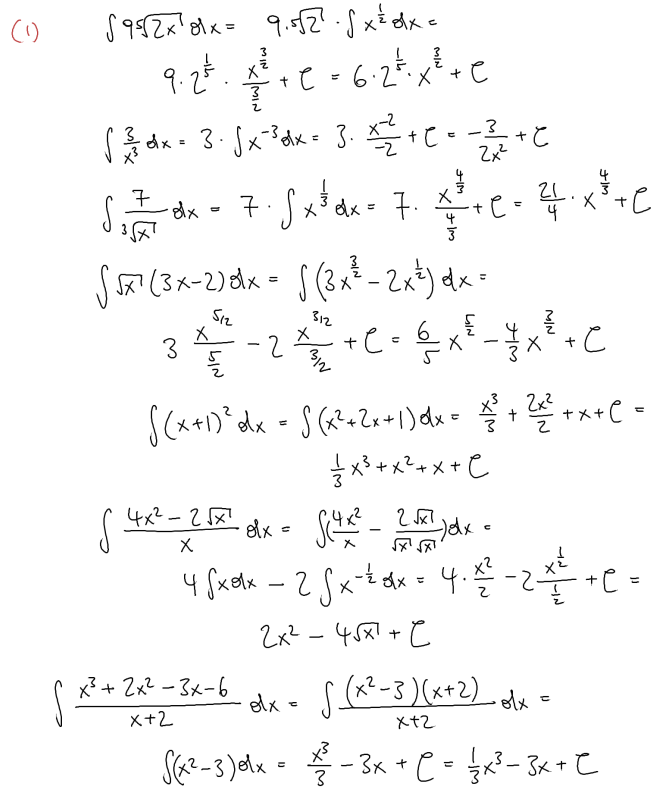 (1) ∫ 9⁵√(2x) dx = 9·⁵√2 · ∫ x^(1/2) dx =
9·2^(1/5) · x^(3/2)/(3/2) + C = 6·2^(1/5)·x^(3/2) + C
∫ 3/x³ dx = 3·∫ x^(-3) dx = 3· x^(-2)/(-2) + C = -3/(2x²) + C
∫ 7/(³√x) dx = 7·∫ x^(1/3) dx = 7· x^(4/3)/(4/3) + C = 21/4 · x^(4/3) + C
∫ √x (3x-2) dx = ∫ (3x^(3/2) - 2x^(1/2)) dx =
3 x^(5/2)/(5/2) - 2 x^(3/2)/(3/2) + C = 6/5 x^(5/2) - 4/3 x^(3/2) + C
∫ (x+1)² dx = ∫ (x²+2x+1) dx = x³/3 + 2x²/2 + x + C =
1/3 x³ + x² + x + C
∫ (4x² - 2√x)/x dx = ∫ (4x²/x - 2√x/(√x √x)) dx =
4 ∫ x dx - 2 ∫ x^(-1/2) dx = 4· x²/2 - 2 x^(1/2)/(1/2) + C =
2x² - 4√x + C
∫ (x³ + 2x² - 3x - 6)/(x+2) dx = ∫ (x²-3)(x+2)/(x+2) dx =
∫ (x²-3) dx = x³/3 - 3x + C = 1/3 x³ - 3x + C